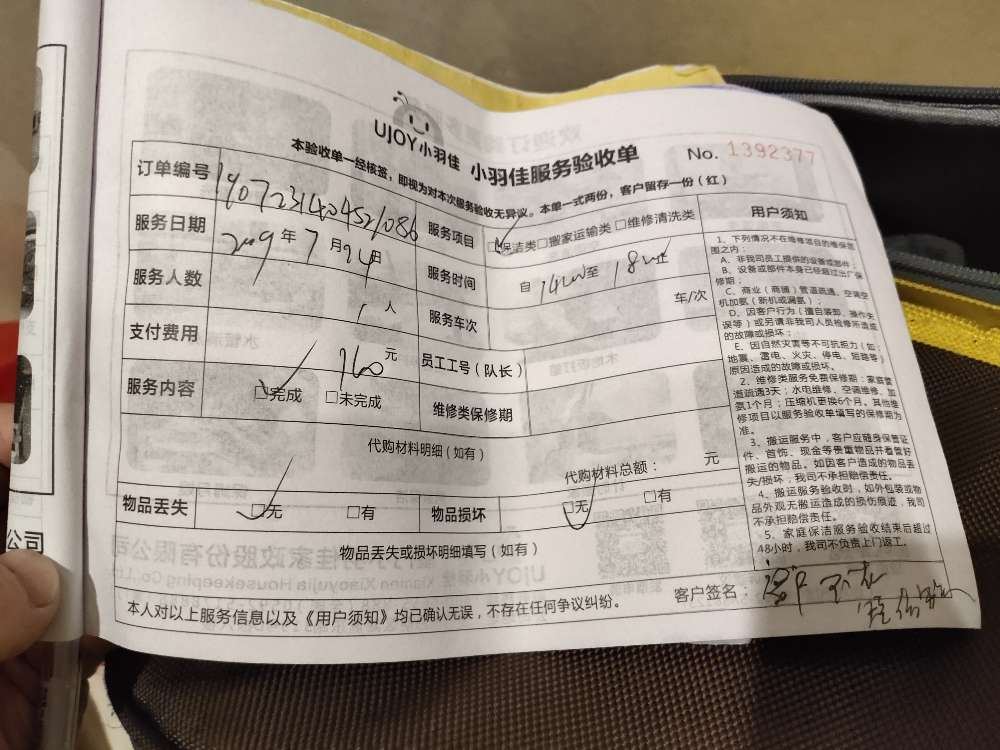 UJOY小羽佳 小羽佳服务验收单
No. 1392377
本验收单一经核签，即视为对本次服务验收无异议。本单一式两份，客户留存一份（红）
订单编号 19072314045521086
服务项目 □保洁类□搬家运输类□维修清洗类
服务日期 2019年7月24日
服务时间 自 14:00 至 18:00止
服务人数 1人
服务车次 车/次
支付费用 760元
员工工号（队长）
服务内容 □完成 □未完成
维修类保修期
代购材料明细（如有）
代购材料总额： 元
物品丢失 □无 □有
物品损坏 □无 □有
物品丢失或损坏明细填写（如有）
用户须知
1、下列情况不在维修项目的维保范
围之内：
A、非我司员工提供的设备或部件；
B、设备或部件本身已经超过出厂保
修期；
C、商业（商通）管道疏通、空调空
机加氨（新机或漏氨）；
D、因客户行为（擅自装卸、操作失
误等）或另请非我司人员检修所造成
的故障或损坏；
E、因自然灾害等不可抗拒力（如：
地震、雷电、火灾、停电、短路等）
原因造成的故障或损坏。
2、维修类服务免费保修期：家庭管
道疏通3天；水电维修、空调维修、加
氨1个月；压缩机更换6个月。其他维
修项目以服务验收单填写的保修期为
准。
3、搬运服务中，客户应随身保管证
件、首饰、现金等贵重物品并看管好
搬运的物品。如因客户造成的物品丢
失/损坏，我司不承担赔偿责任。
4、搬运服务验收时，如外包装或物
品外观无搬运造成的损伤痕迹，我司
不承担赔偿责任。
5、家庭保洁服务验收结束后超过
48小时，我司不负责上门返工。
客户签名：
本人对以上服务信息以及《用户须知》均已确认无误，不存在任何争议纠纷。
公司